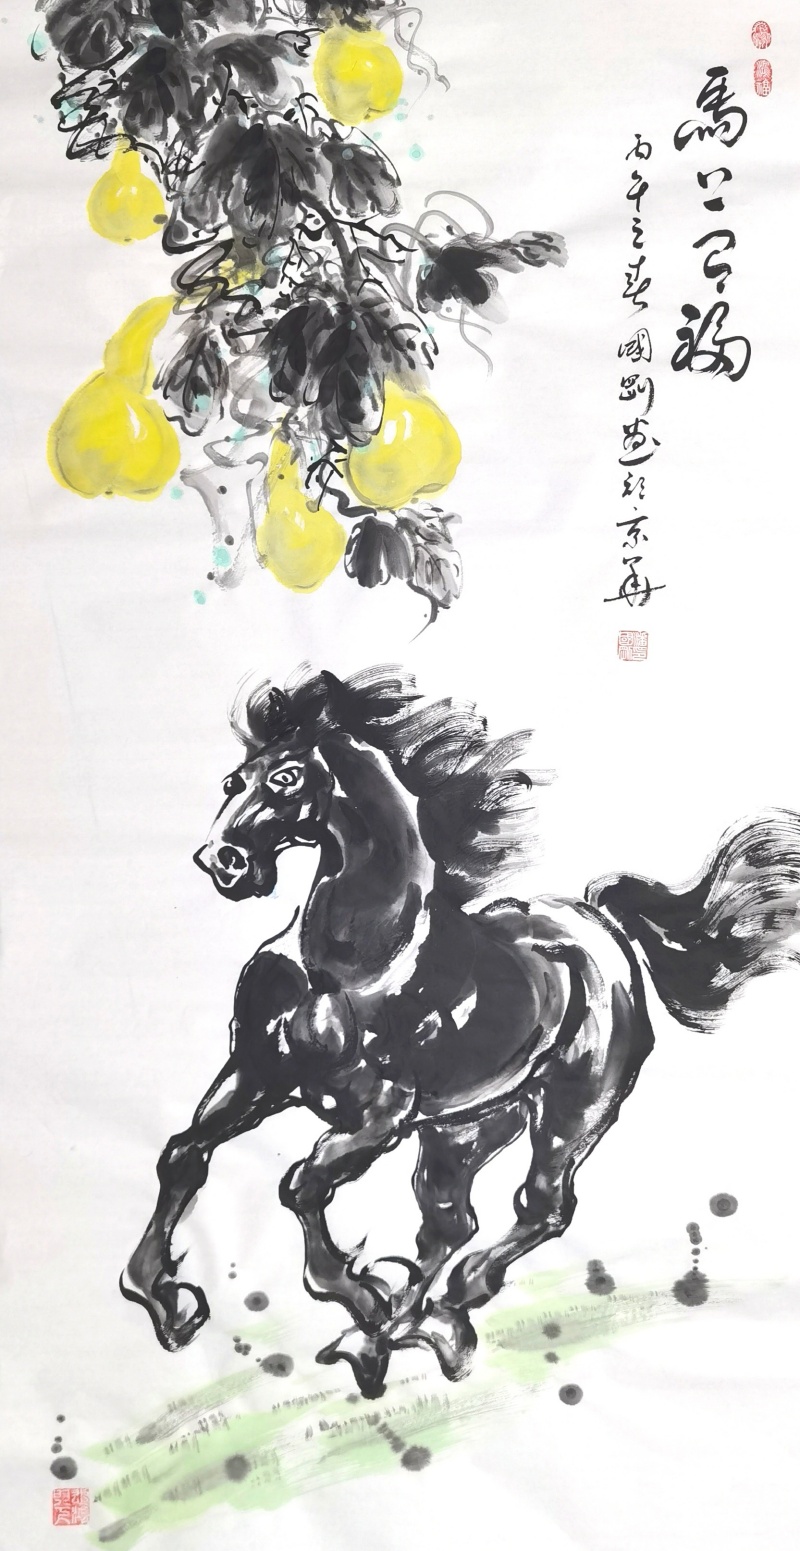 馬上有福
丙午之春國剛画於京華